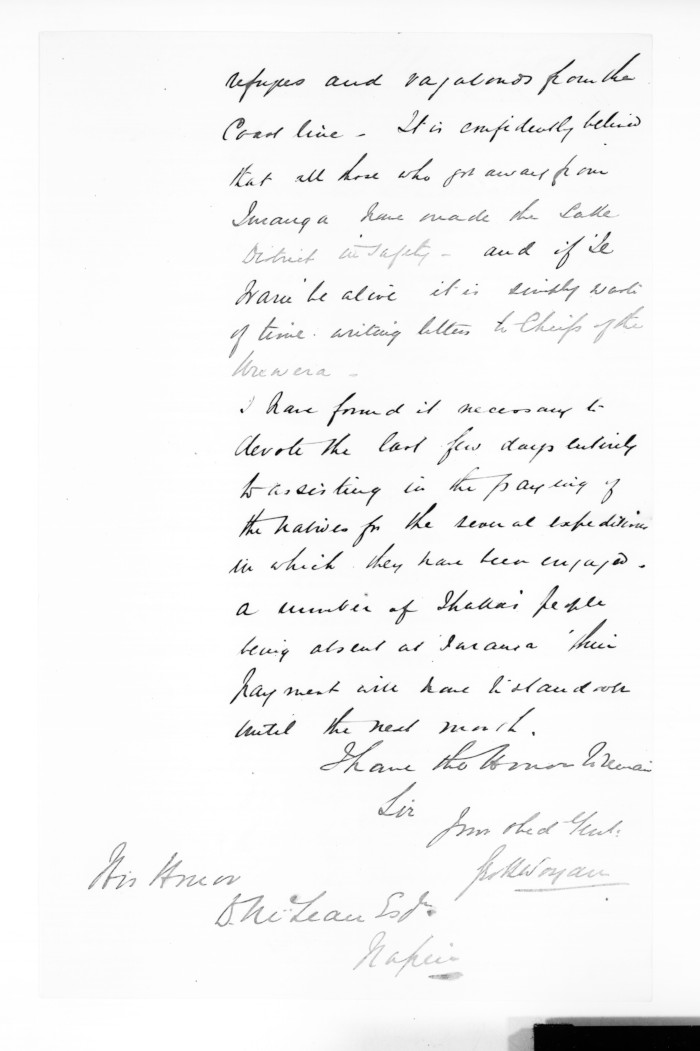 refuges and vagabonds from the
Coast line - It is confidently believed
that all those who got away from
Turanga have made the Lake
District in safety - and if Te
Waru be alive it is simply waste
of time writing letters to Chiefs of the
Urewera -
I have found it necessary to
devote the last few days entirely
to assisting in the paying of
the Natives for the several expeditions
in which they have been engaged -
a number of Ihaka's people
being absent at Turanga their
payment will have to stand over
until the next month.
I have the Honor to remain
Sir
Your obed Servt
His Honor
D. McLean Esqr
Napier